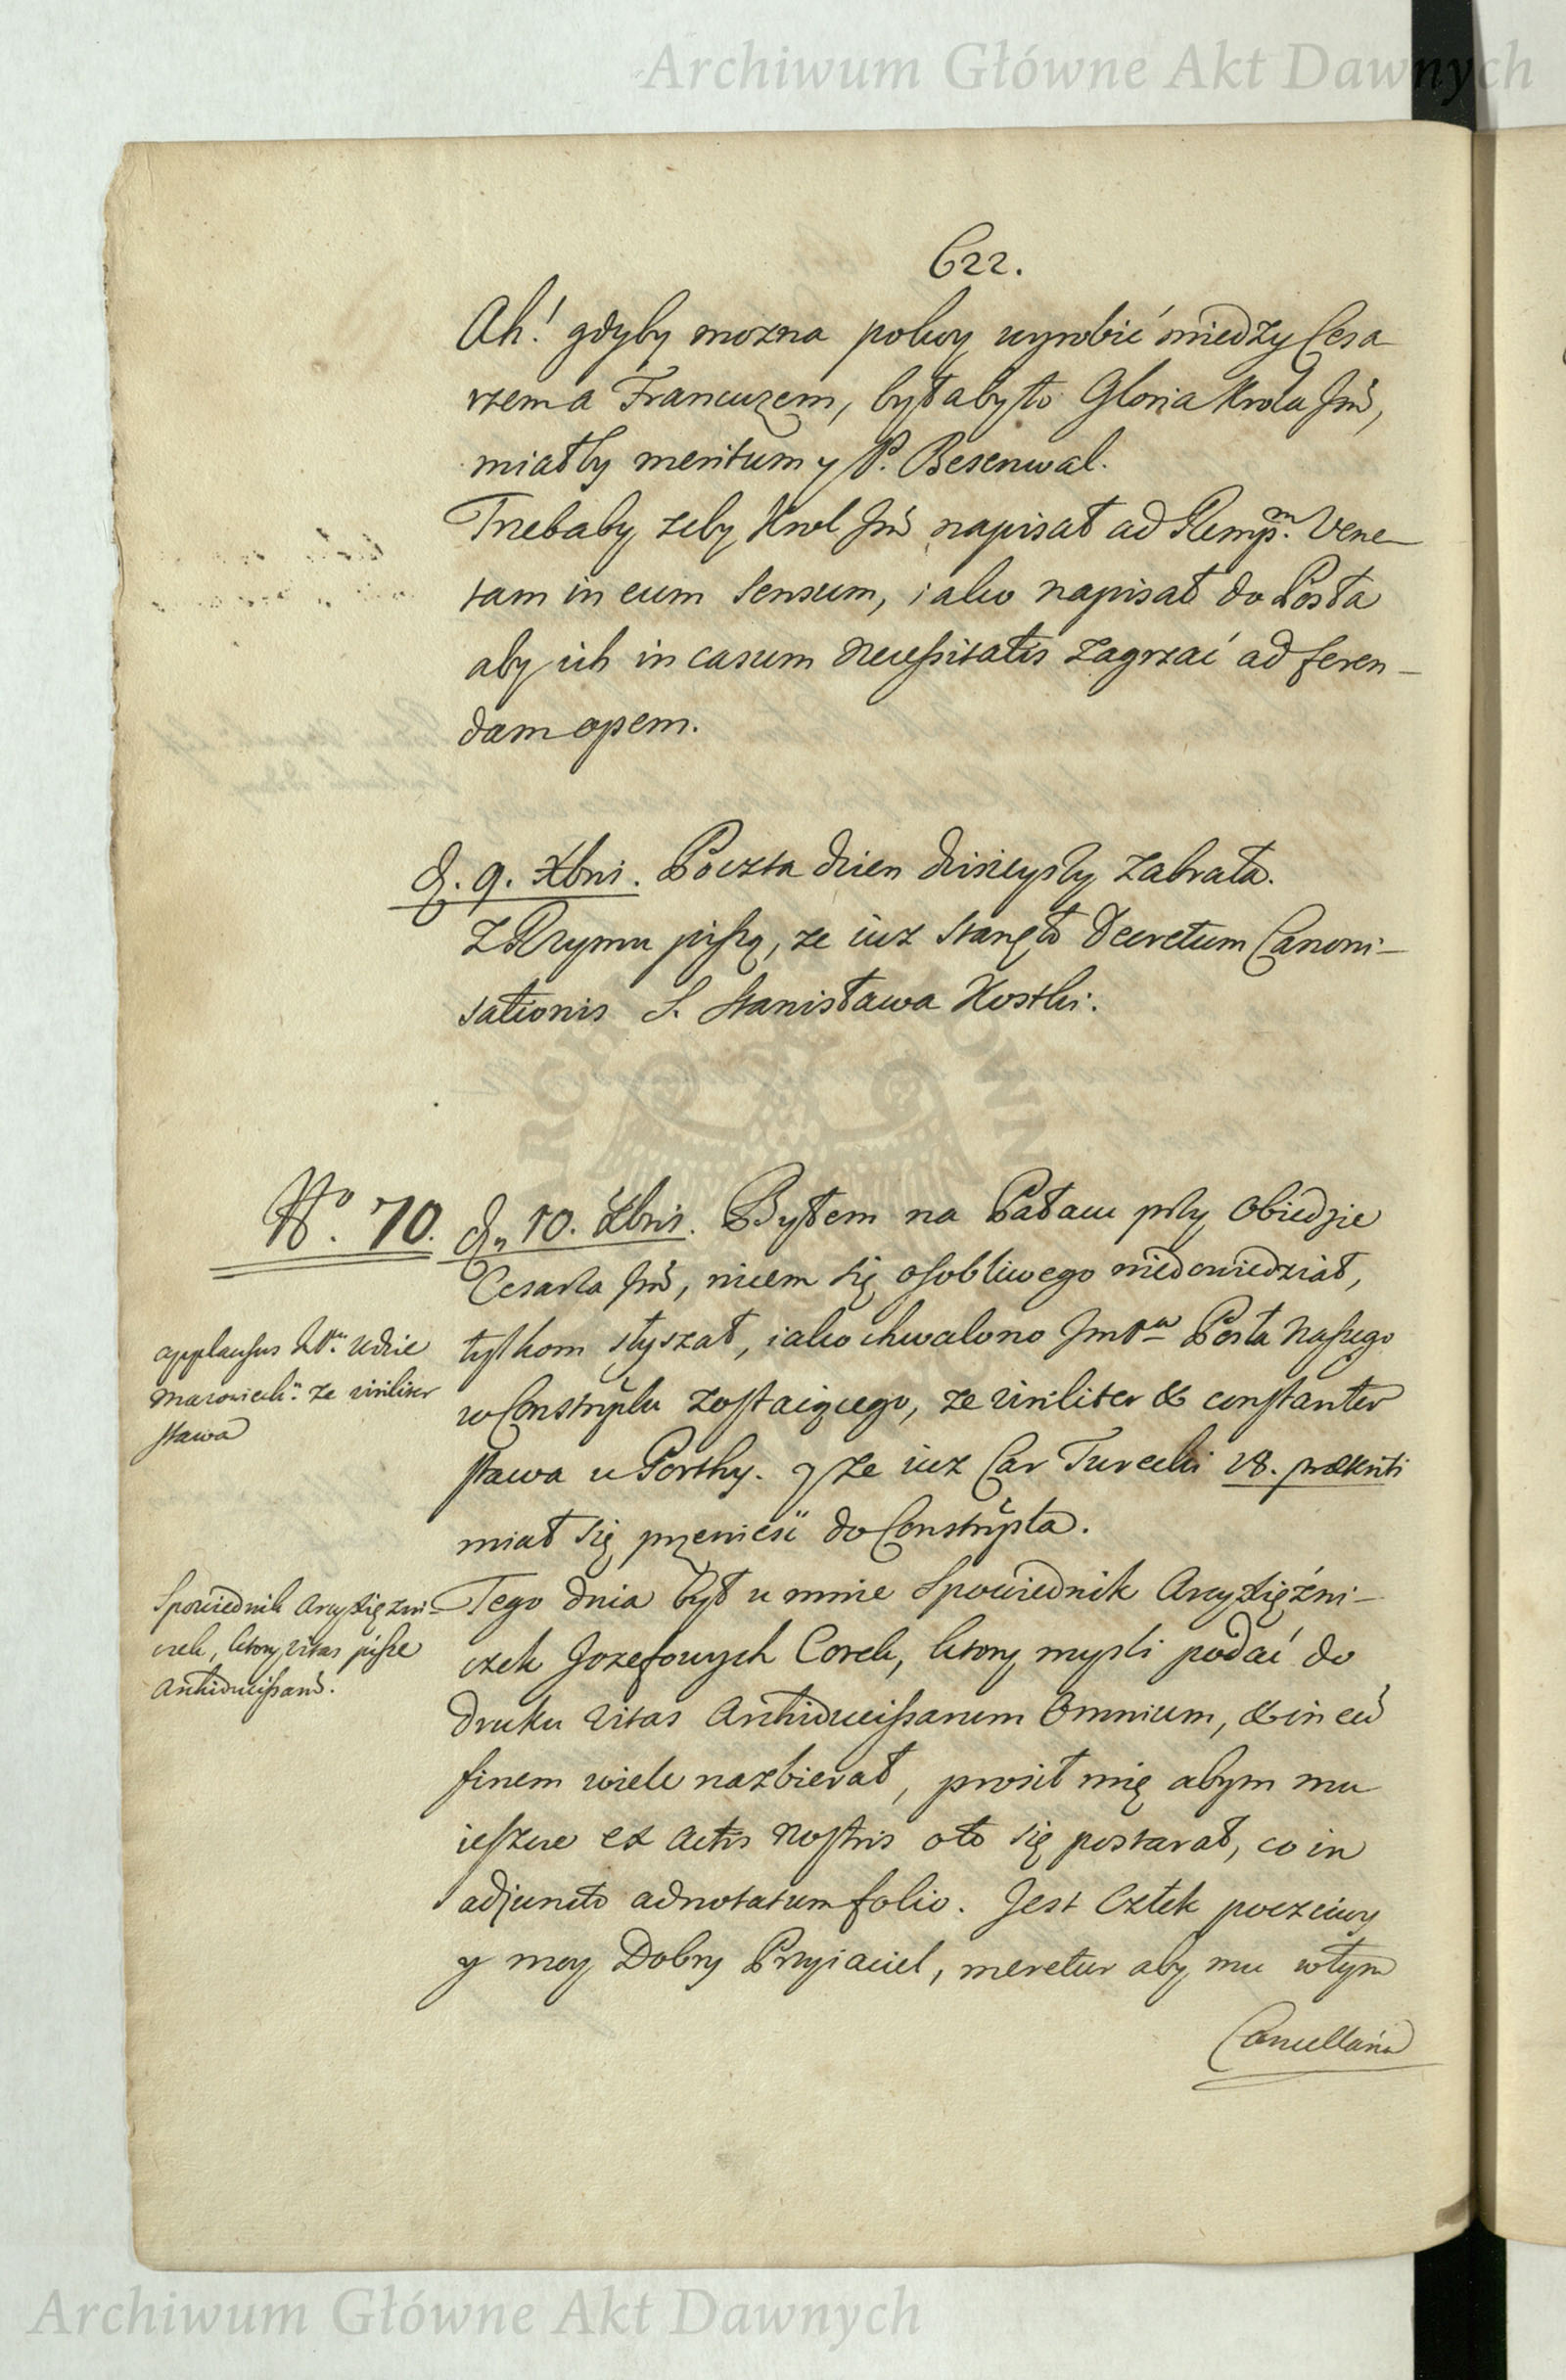 Archiwum Główne Akt Dawnych
622.
Ah! gdyby mozna pokoy wyrobić miedzy Cesa
rzem a Francuzem, byłaby to Gloria Krola Jmć,
miałby meritum y P. Besenwal.
Trzebaby zeby Krol Jmć napisał ad Rempm. Vene-
tam in eum sensum, iako napisał do Posła
aby ich in casum necessitatis zagrzać ad feren-
dam opem.
d. 9. Xbris. Poczta dzien dzisieyszy zabrała.
Z Rzymu piszą, ze iuz stanęło Decretum Canoni-
sationis S. Stanisława Kostki.
No. 70. d. 10. Xbris. Byłem na Pałacu przy Obiedzie
Cesarza Jmć, nicem się osobliwego niedowiedział,
tylkom słyszał, iako chwalono JmPa Posła naszego
w Constnplu zostaiącego, ze viriliter & constanter
stawa u Porthy. y ze iuz Car Turecki 28. præteriti
miał się przenieść do Constnpla.
applausus
Mazowieck: ze viriliter
stawa
Tego dnia był u mnie Spowiednik Arcyxięźni-
czek Jozefowych Corek, ktory mysli podać do
druku vitas Archiducissarum Omnium, & in eū
finem wiele nazbierał, prosił mię abym mu
ieszcze ex actis nostris oto się postarał, co in
adjuncto adnotatum folio. Jest Człek poczciwy
y moy Dobry Przyiaciel, meretur aby mu w tym
Spowiednik Arcyxięzni-
czek, ktory vitas pisze
Archiducissarū.
Cancellaria
Archiwum Główne Akt Dawnych